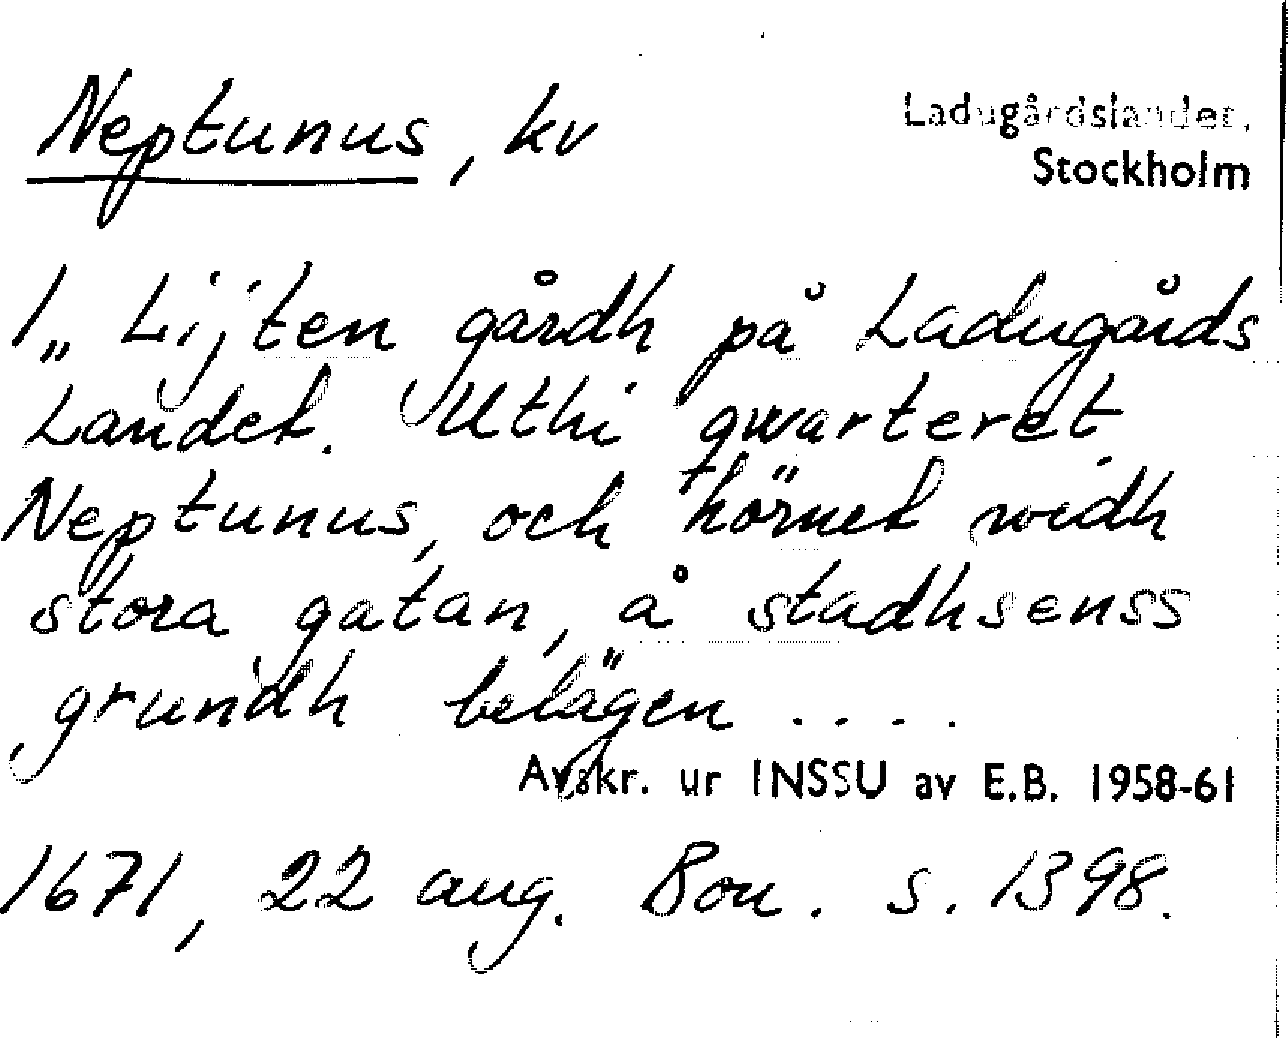 Neptunus, kv
Ladugårdslandet,
Stockholm
1„ Lijten gårdh på Ladugårds
Landet. Uthi qwarteret
Neptunus, och hörnet widh
stora gatan, å stadhsenss
grundh belägen ....
Avskr. ur INSSU av E.B. 1958-61
1671, 22 aug. Bou. s. 1398.